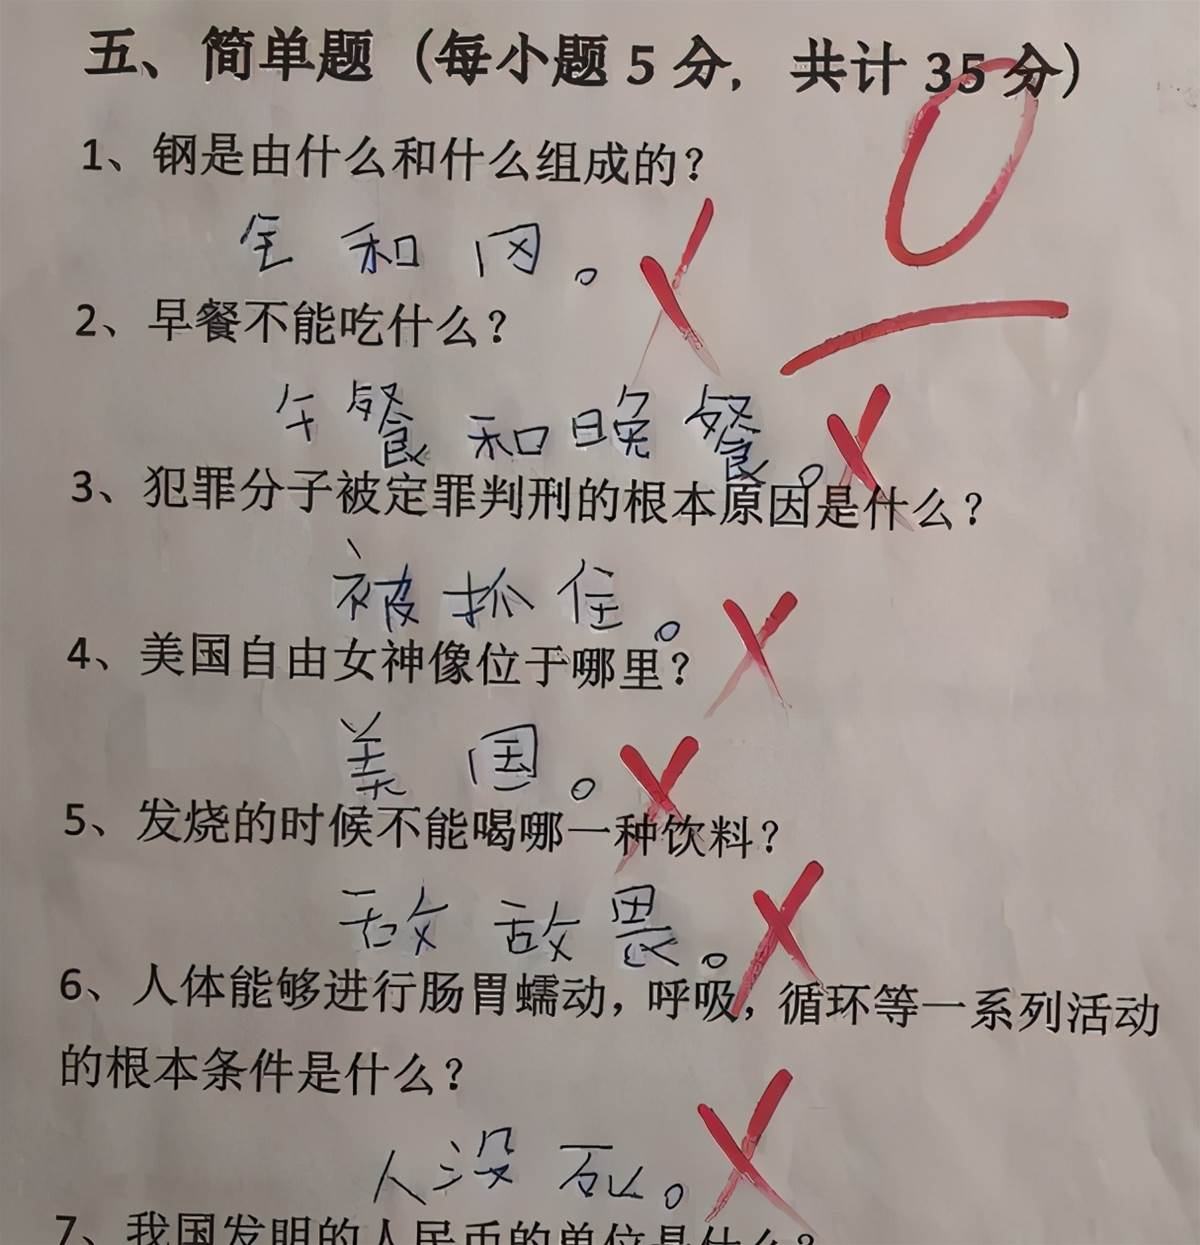 五、简单题（每小题 5 分，共计 35 分）
0
1、钢是由什么和什么组成的？
钅和冈。
2、早餐不能吃什么？
午餐和晚餐。
3、犯罪分子被定罪判刑的根本原因是什么？
被抓住。
4、美国自由女神像位于哪里？
美国。
5、发烧的时候不能喝哪一种饮料？
敌敌畏。
6、人体能够进行肠胃蠕动，呼吸，循环等一系列活动
的根本条件是什么？
人没死。
7、我国发明的人民币的单位是什么？